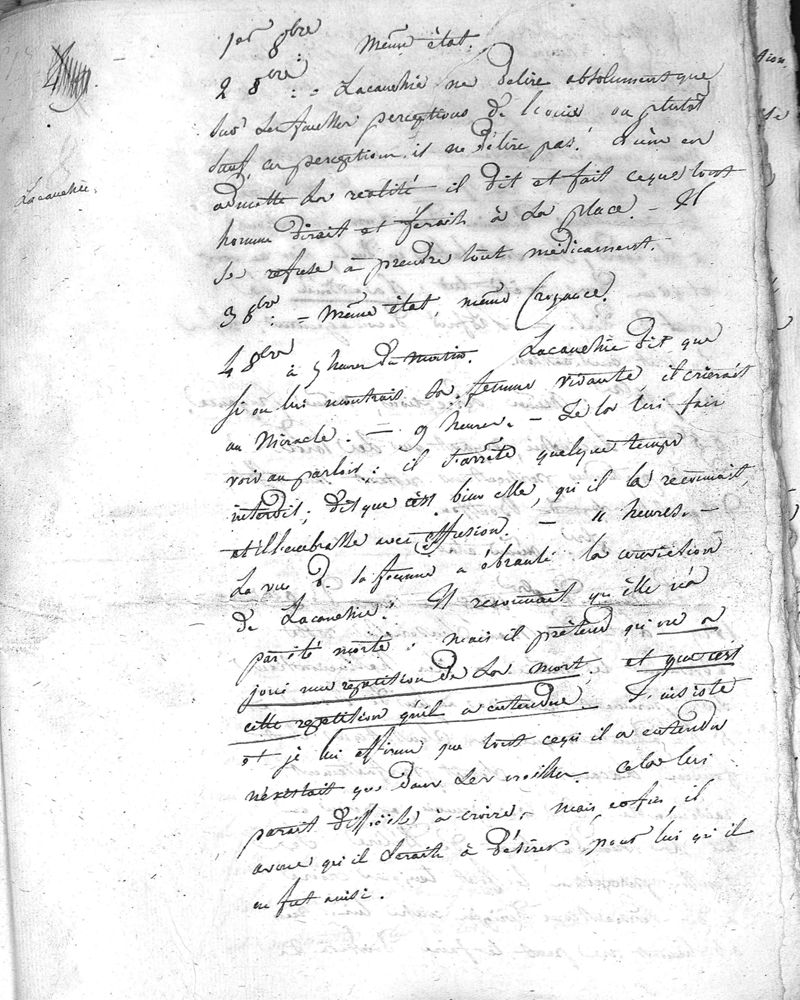 1er 8bre : même état.
2 8bre : - Lacauchie ne délire absolument que
sur les fausses perceptions de l'ouie ou plutot
sauf ces perceptions, il ne délire pas! Si l'on en
admette la realité il dit et fait ceque tout
homme dirait et ferait à sa place. - Il
se refuse à prendre tout médicament.
Lacauchie.
3 8bre : - même état, même croyance.
4 8bre à 5 heures du matin. Lacauchie dit que
si on lui montrait sa femme vivante, il crierait
au miracle. - 9 heures. - Je la lui fais
voir au parloir : il s'arrête quelque temps
interdit, dit que c'est bien elle, qu'il la reconnait,
et il l'embrasse avec effusion. - 11 heures. -
La vue de sa femme a ébranlé la conviction
de Lacauchie. Il reconnait qu'elle n'a
pas été morte : mais il prétend qu'on a
joué une repetition de la mort, et que c'est
cette repetition qu'il a entendue. J'insiste
et je lui affirme que tout cequ'il a entendu
n'existait que dans ses oreilles. Cela lui
parait difficile à croire, mais, enfin, il
avoue qu'il serait à désirer pour lui qu'il
en fut ainsi.